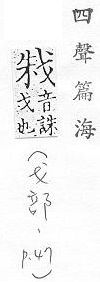 四聲篇海
音誅
戈也
(戈部、p.47)